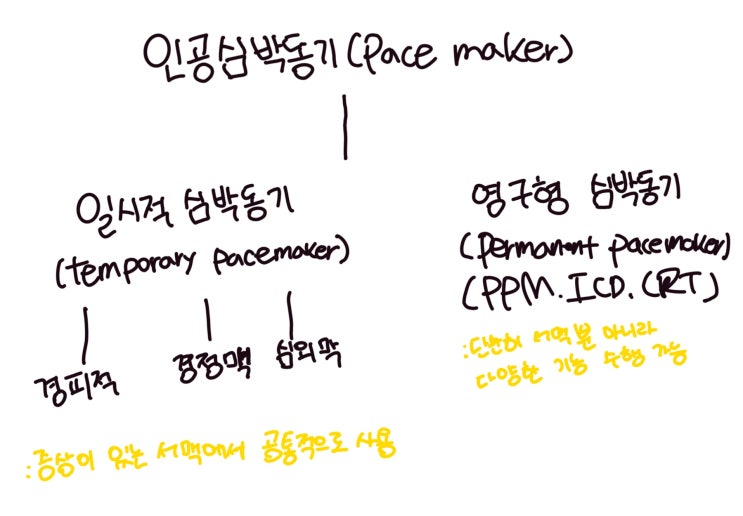 인공심박동기(pace maker)
일시적 심박동기
(temporary pacemaker)
경피적
경정맥
심외막
:증상이 있는 서맥에서 공통적으로 사용
영구형 심박동기
(permanant pacemaker)
(PPM.ICD.CRT)
:단순히 서맥뿐 아니라
다양한 기능 수행 가능